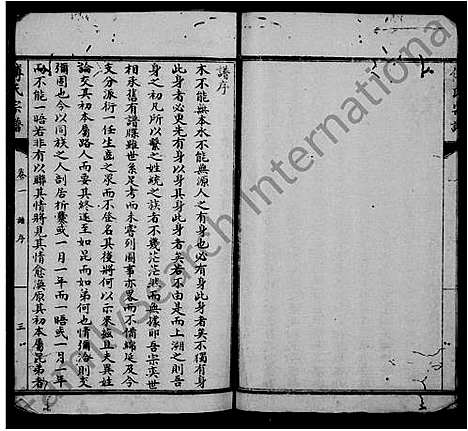 譜序
木不能無本水不能無源人之有身也必有身此身者矣不獨有身
此身者必更先有身以身其身此身者矣若不由是而上溯之則吾
身之初凡所以繫之姓統之族者不幾茫茫然而無據耶吾宗奕世
相承舊有譜牒雖世系足考而未嘗列圖事亦畧而不備綿延及今
支分派衍一任生齒之眾而不登名其後將何以示來茲且夫異姓
論交其初本屬路人而要其終遂至如昆而如弟何也情彌洽則交
彌固也今以同族之人剖居折爨或一月一年而一晤或一月一年
而不能一晤若非有以聯其情將見其情愈渙原其初本屬昆弟者
氏宗譜
卷一
譜序
三
FamilySearch International